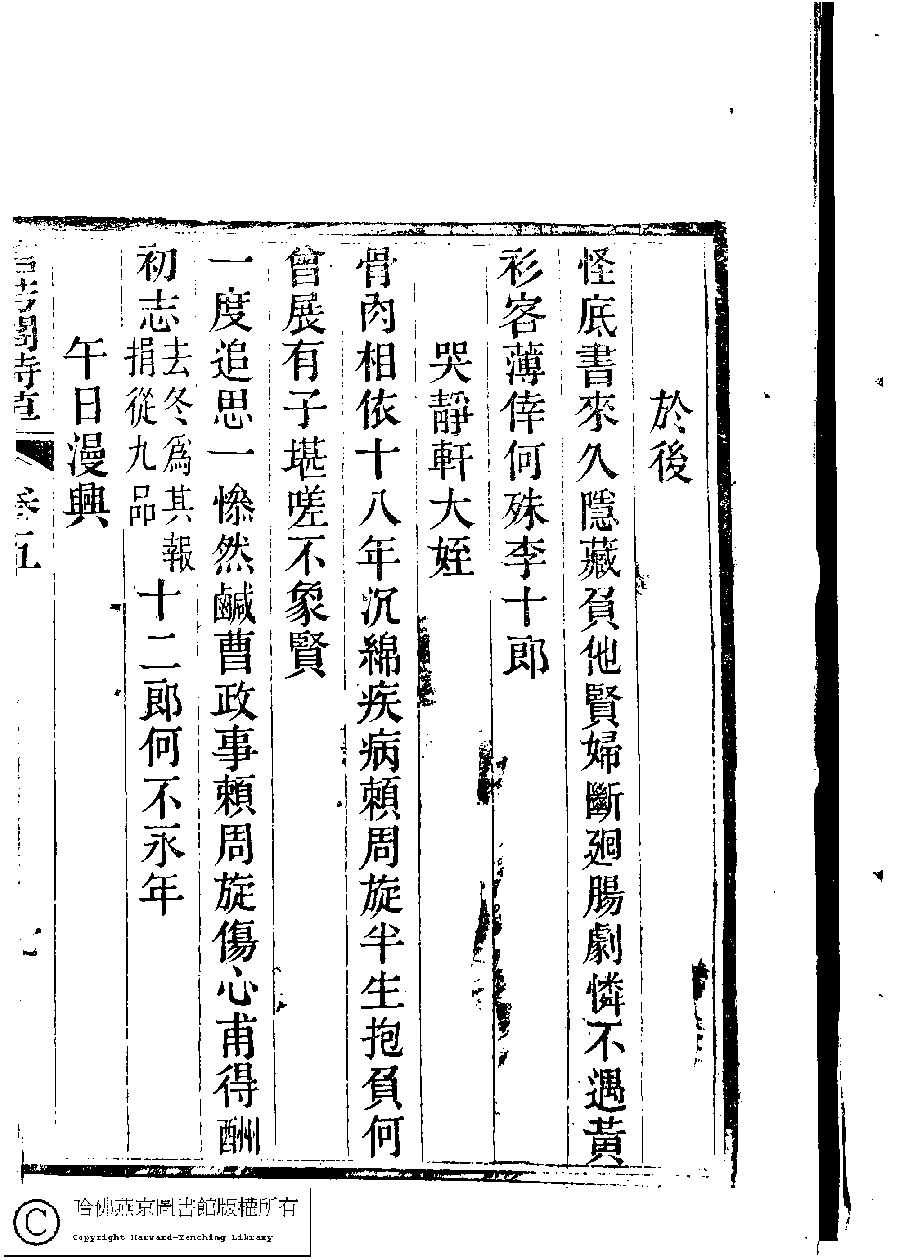 於後
怪底書來久隱藏負他賢婦斷廻腸劇憐不遇黃
衫客薄倖何殊李十郎
哭靜軒大姪
骨肉相依十八年沉綿疾病賴周旋半生抱負何
曾展有子堪嗟不象賢
一度追思一慘然鹹曹政事賴周旋傷心甫得酬
初志去冬爲其報捐從九品十二郎何不永年
午日漫興
卷五
哈佛燕京圖書館版權所有
Copyright Harvard-Yenching Library